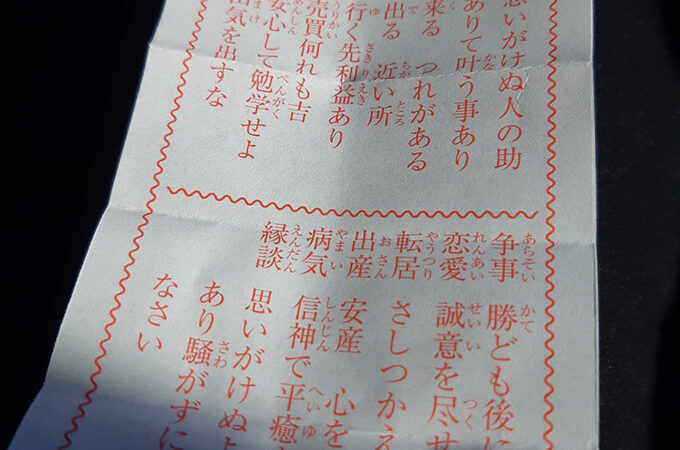 思いがけぬ人の助
ありて叶う事あり
来る つれがある
出る 近い所
行く先利益あり
売買何れも吉
安心して勉学せよ
気を出すな
争事 勝ども後に
恋愛 誠意を尽せ
転居 さしつかえ
出産 安産 心を
病気 信神で平癒
縁談 思いがけぬよ
あり騒がずに
なさい